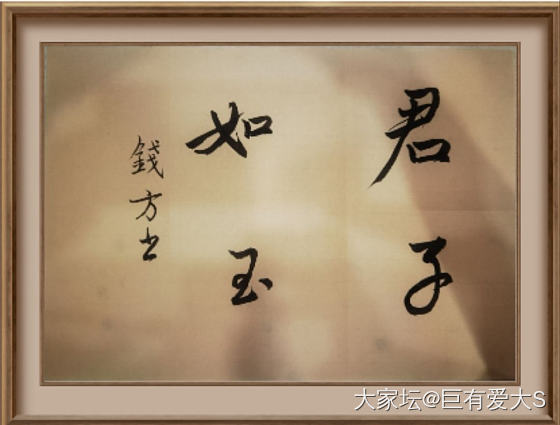 君子
如玉
錢方书
大家坛@巨有爱大S